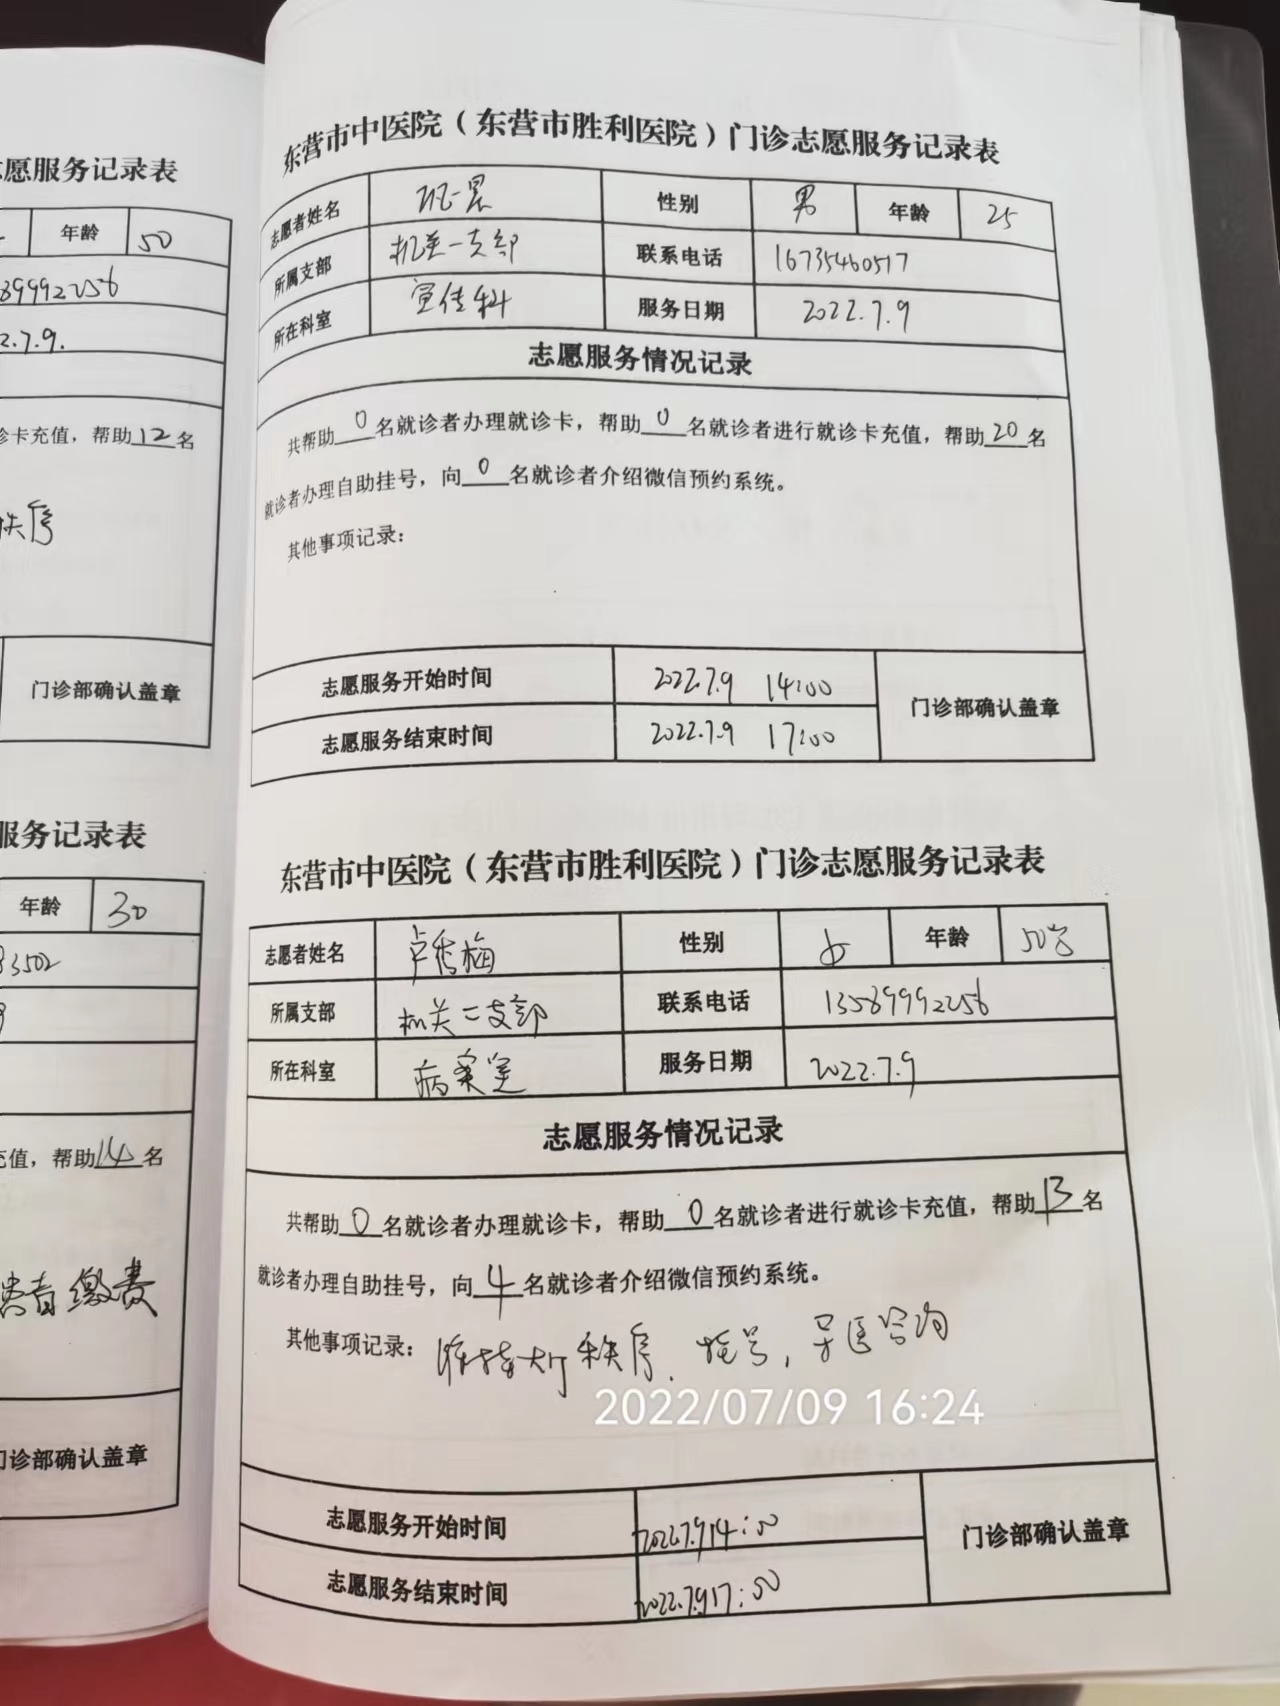 愿服务记录表
年龄 50
89992256
2.7.9.
诊卡充值，帮助12名
秩序
门诊部确认盖章
服务记录表
年龄 30
83502
9
充值，帮助14名
患者缴费
门诊部确认盖章
东营市中医院（东营市胜利医院）门诊志愿服务记录表
志愿者姓名 性别 男 年龄 25
所属支部 机关一支部 联系电话 16735460517
所在科室 宣传科 服务日期 2022.7.9
志愿服务情况记录
共帮助0名就诊者办理就诊卡，帮助0名就诊者进行就诊卡充值，帮助20名
就诊者办理自助挂号，向0名就诊者介绍微信预约系统。
其他事项记录：
志愿服务开始时间 2022.7.9 14:00
门诊部确认盖章
志愿服务结束时间 2022.7.9 17:00
东营市中医院（东营市胜利医院）门诊志愿服务记录表
志愿者姓名 卢秀梅 性别 女 年龄 50岁
所属支部 机关二支部 联系电话 13589992256
所在科室 病案室 服务日期 2022.7.9
志愿服务情况记录
共帮助0名就诊者办理就诊卡，帮助0名就诊者进行就诊卡充值，帮助13名
就诊者办理自助挂号，向4名就诊者介绍微信预约系统。
其他事项记录：维持大厅秩序、挂号，导医咨询
2022/07/09 16:24
志愿服务开始时间 2022.7.9 14:00
门诊部确认盖章
志愿服务结束时间 2022.7.9 17:00